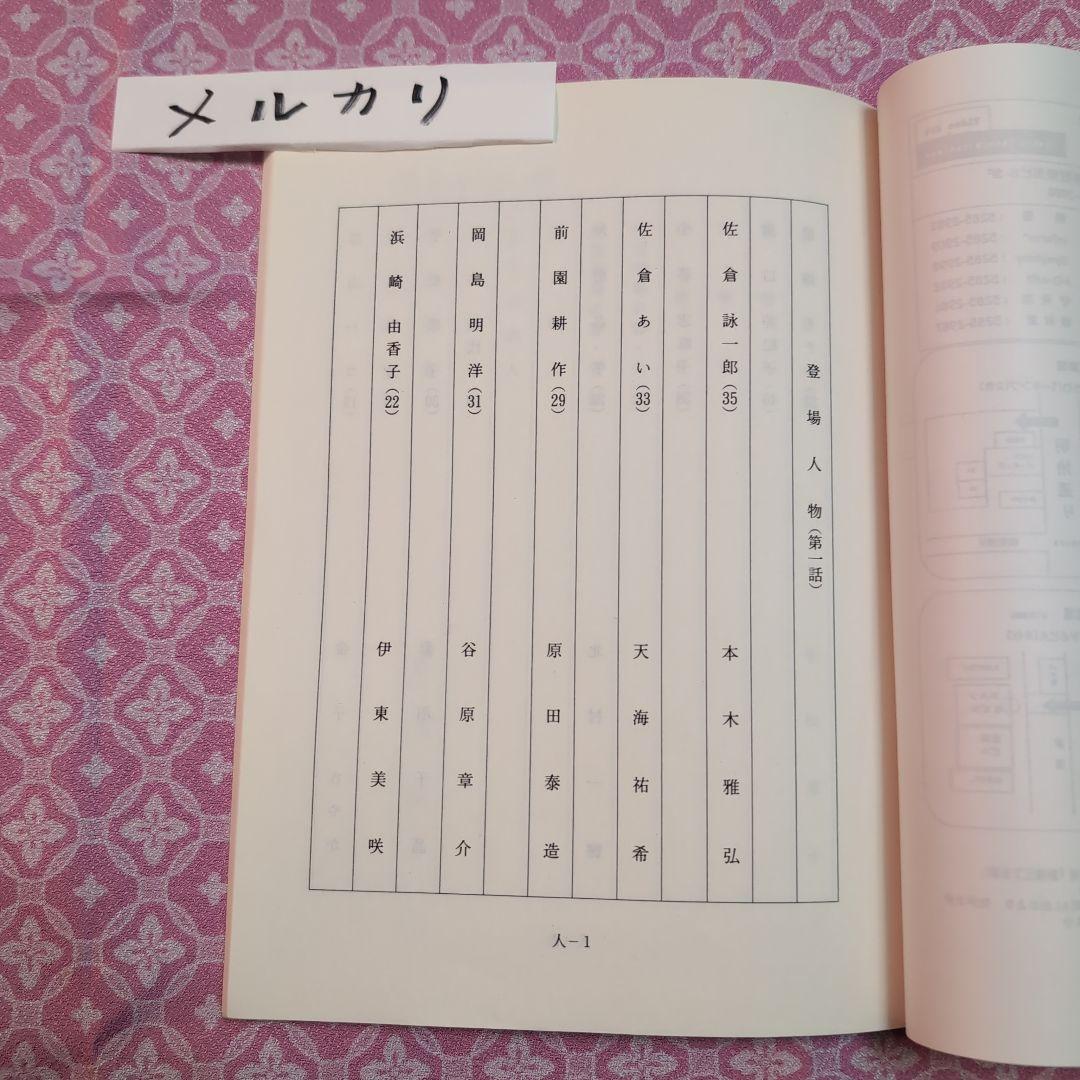 メルカリ
登場人物（第一話）
佐倉詠一郎（35） 本木雅弘
佐倉あい（33） 天海祐希
前園耕作（29） 原田泰造
岡島明洋（31） 谷原章介
浜崎由香子（22） 伊東美咲
人－1